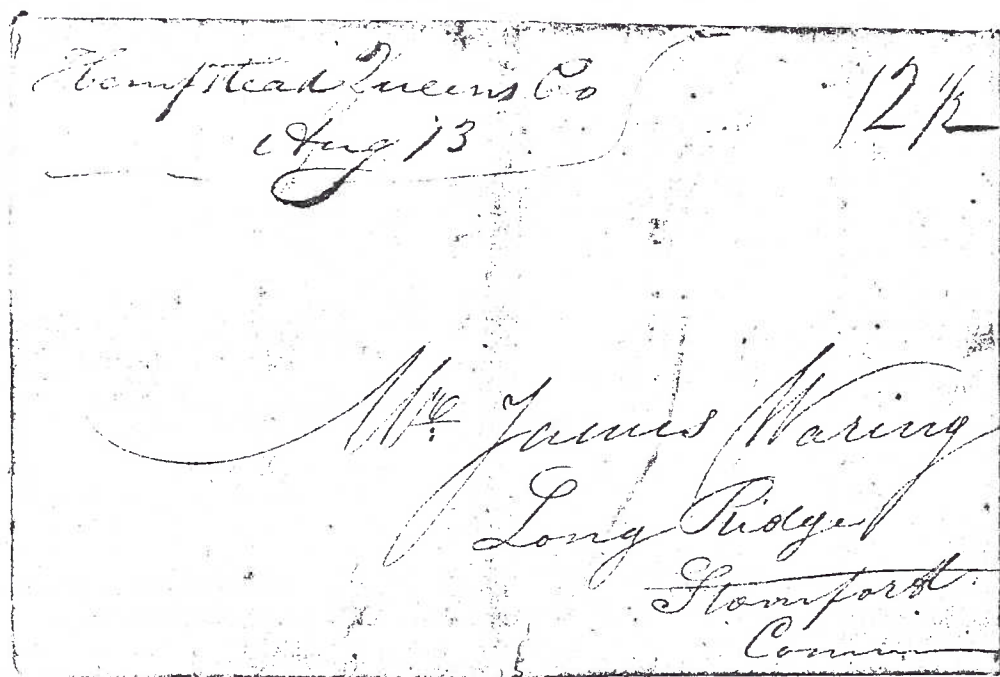 Hempstead Queens Co 12 1/2
Aug 13
Mr James Waring
Long Ridge
Stamford
Conn